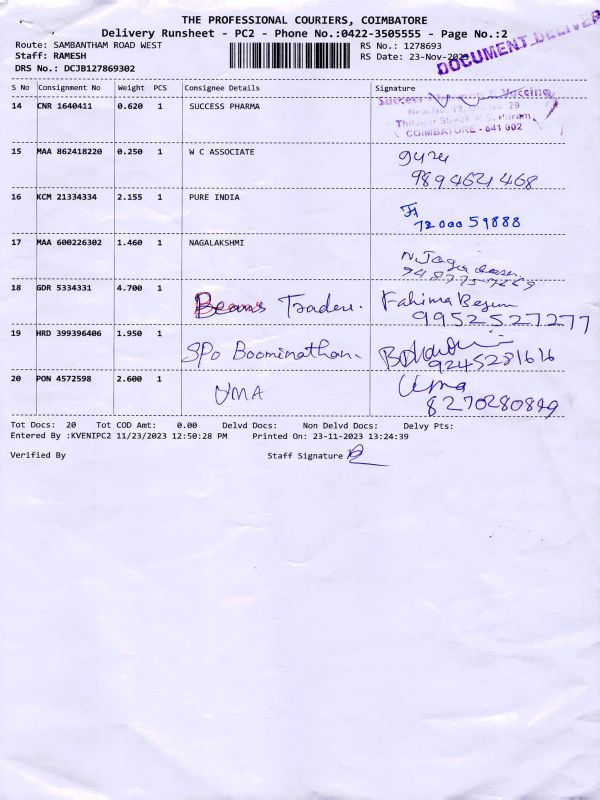 THE PROFESSIONAL COURIERS, COIMBATORE
Delivery Runsheet - PC2 - Phone No.:0422-3505555 - Page No.:2
Route: SAMBANTHAM ROAD WEST RS No.: 1278693
Staff: RAMESH RS Date: 23-Nov-2023
DRS No.: DCJB127869302
DOCUMENT DELIVER
S No Consignment No Weight PCS Consignee Details Signature
14 CNR 1640411 0.620 1 SUCCESS PHARMA
Success & Vaccine
New No. 12, Old No. 29
Street, R.S. Puram,
COIMBATORE - 641 002
15 MAA 862418220 0.250 1 W C ASSOCIATE
9894621468
16 KCM 21334334 2.155 1 PURE INDIA
7200059888
17 MAA 600226302 1.460 1 NAGALAKSHMI
18 GDR 5334331 4.700 1 Traders. Fahima Begum
9952527277
19 HRD 399396406 1.950 1 SPO Boominathan.
9245281616
20 PON 4572598 2.600 1 UMA Uma
8270280849
Tot Docs: 20 Tot COD Amt: 0.00 Delvd Docs: Non Delvd Docs: Delvy Pts:
Entered By :KVENIPC2 11/23/2023 12:50:28 PM Printed On: 23-11-2023 13:24:39
Verified By Staff Signature